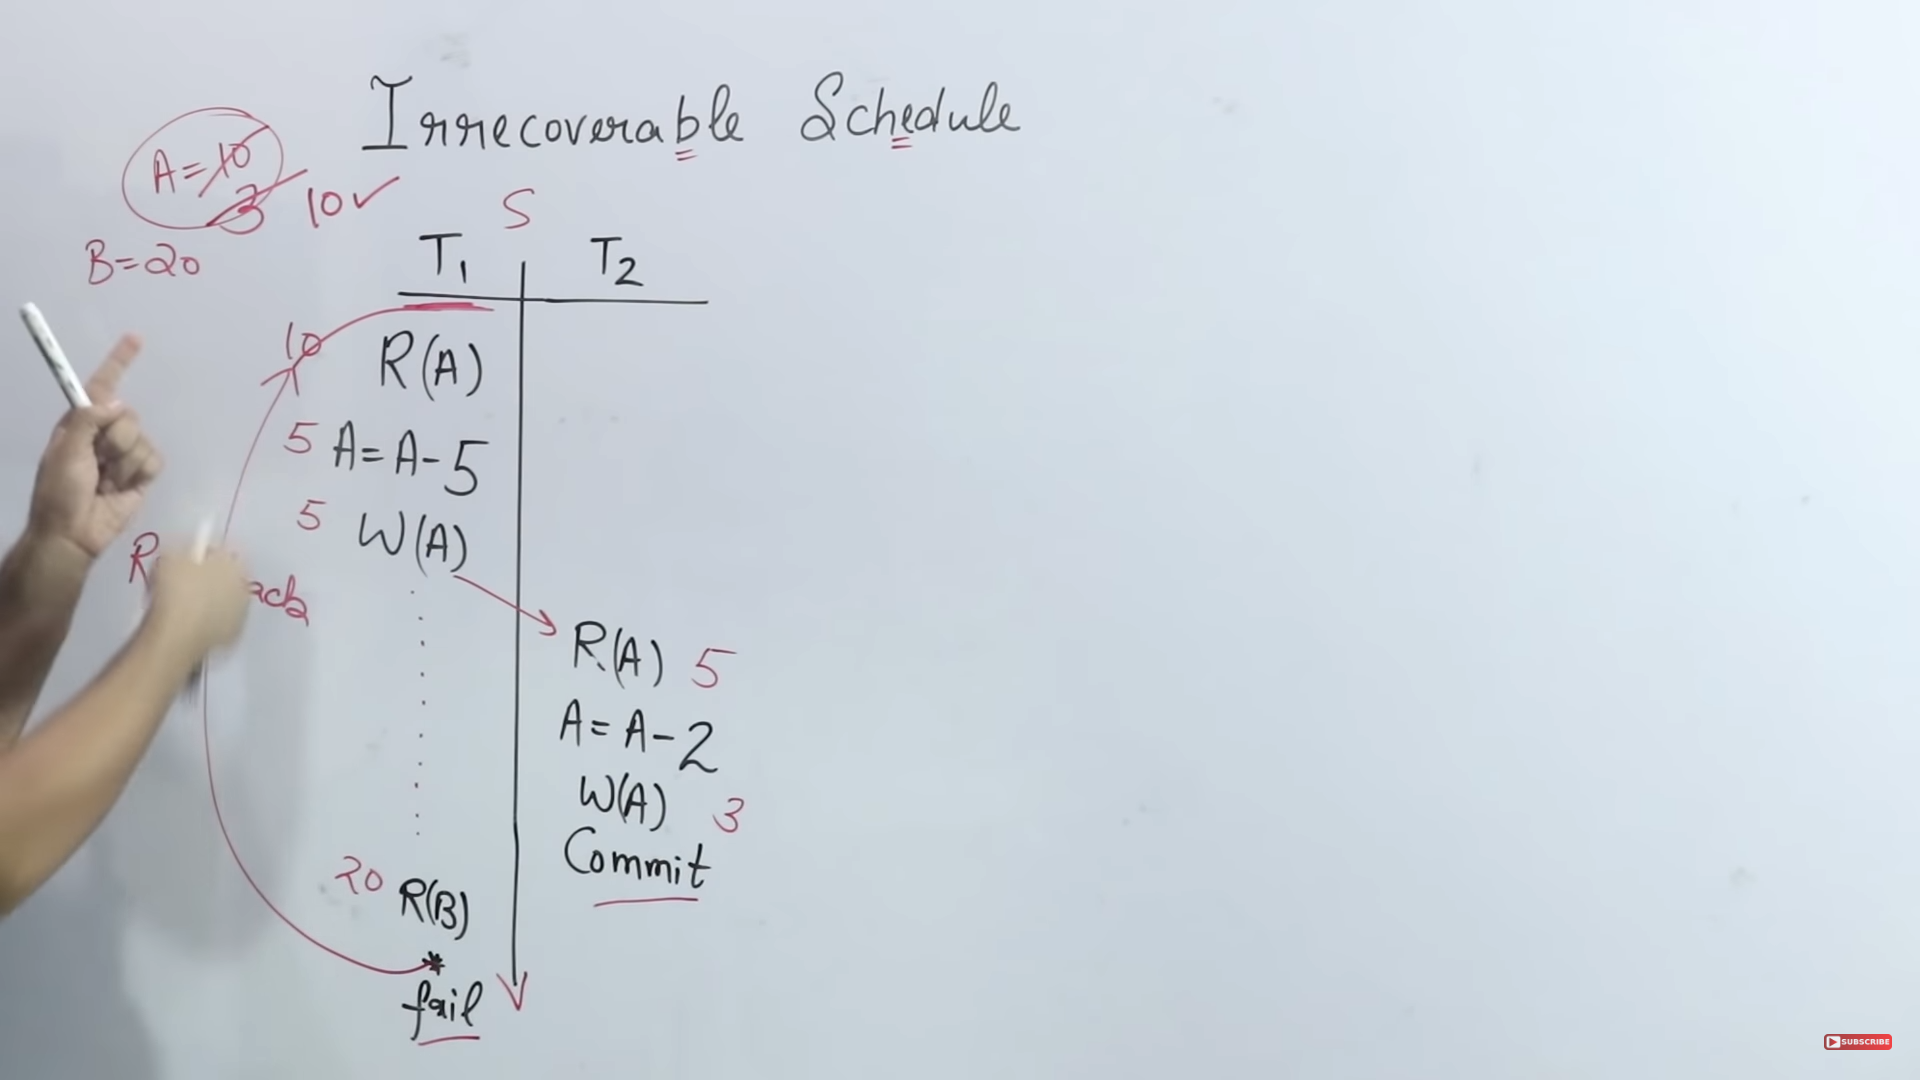 Irrecoverable Schedule
A=10
3 10✓
B=20
S
T1 T2
10 R(A)
5 A=A-5
5 W(A)
R(A) 5
A=A-2
W(A) 3
Commit
20 R(B)
*
fail
SUBSCRIBE